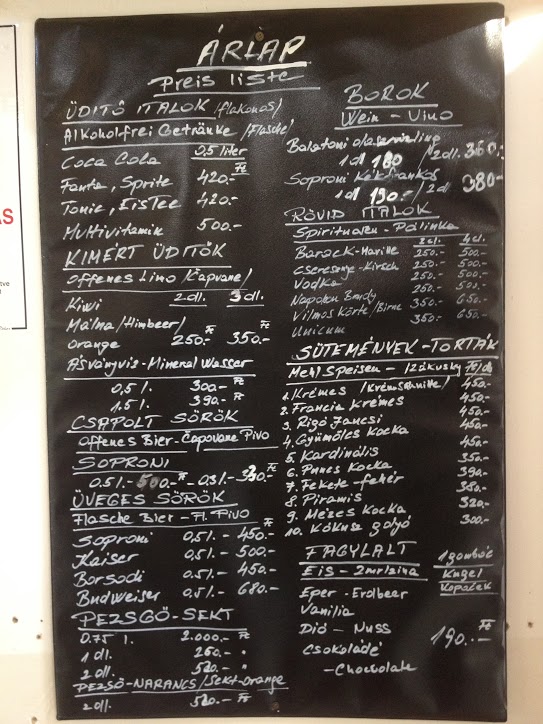 ÁRLAP
Preis liste
ÜDITŐ ITALOK /flakonos/
Alkoholfrei Getränke /Flasche/
Coca Cola 0,5 liter
Fanta, Sprite 420.- Ft
Tonic, EisTee 420.-
Multivitamin 500.-
KIMÉRT ÜDITŐK
offenes Limo /Capovane/
Kiwi 2dl. 3dl.
Málna/Himbeer/
orange 250.- Ft 350.- Ft
Ásványvíz-Mineral Wasser
0,5 l. 300.- Ft
1,5 l. 390.- Ft
CSAPOLT SÖRÖK
offenes Bier-Capovane Pivo
SOPRONI
0.5 l.-500.- Ft -0,3 l.-330.- Ft
ÜVEGES SÖRÖK
Flasche Bier - Fl. Pivo
Soproni 0,5 l.- 450.- Ft
Kaiser 0,5 l.- 500.-
Borsodi 0,5 l.- 450.-
Budweiser 0,5 l.- 680.-
PEZSGŐ-SEKT
0.75 l. 2.000.- Ft
1 dl. 260.- "
2 dl. 520.- "
PEZSGŐ-NARANCS/Sekt-Orange
2 dl. 520.- Ft
BOROK
Wein - Vino
Balatoni olaszrizling
1 dl 180 / 2dl. 360.-
Soproni Kékfrankos
1 dl 190.- / 2 dl 380.-
RÖVID ITALOK
Spirituosen - Pálinka
2 cl. 4 cl.
Barack-Marille 250.- 500.-
Cseresznye-Kirsch 250.- 500.-
Vodka 250.- 500.-
Napoleon Brandy 250.- 500.-
Vilmos Körte/Birne 350.- 650.-
Unicum 350.- 650.-
SÜTEMÉNYEK-TORTÁK
Mehl Speisen - Zákusky Ft/db
1. Krémes /Krémschnitte/ 450.-
2. Francia Krémes 450.-
3. Rigó Jancsi 450.-
4. Gyümölcs Kocka 450.-
5. Kardinális 450.-
6. Puncs Kocka 350.-
7. Fekete-fehér 390.-
8. Piramis 380.-
9. Mézes Kocka 320.-
10. Kókusz golyó 300.-
FAGYLALT 1 gombóc
Eis - Zmrzlina Kugel
Kopaček
Eper - Erdbeer
Vanilia
Dió - Nuss 190.- Ft
Csokoládé
- Choccolate